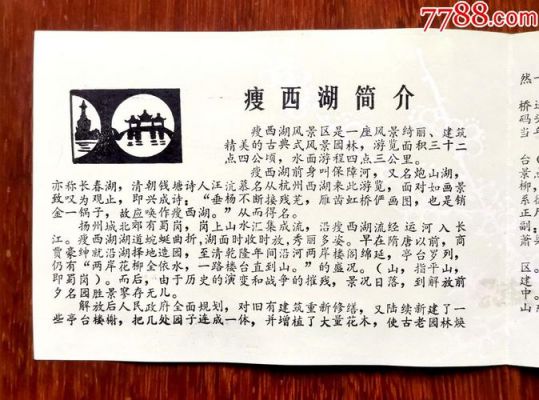 7788.com
瘦西湖简介
瘦西湖风景区是一座风景绮丽、建筑
精美的古典式风景园林，游览面积三十二
点四公顷，水面游程四点三公里。
瘦西湖前身叫保障河，又名炮山湖，
亦称长春湖，清朝钱塘诗人汪沆慕名从杭州西湖来此游览，面对如画景
致叹为观止，即兴成诗：“垂杨不断接残芜，雁齿虹桥俨画图，也是销
金一锅子，故应唤作瘦西湖。”从而得名。
扬州城北郊有蜀冈，岗上山水汇集成流，沿瘦西湖流经运河入长
江。瘦西湖湖道蜿蜒曲折，湖面时收时放，秀丽多姿。早在隋唐以前，商
贾豪绅就沿湖择地造园，至清乾隆年间沿河两岸楼阁绵延，亭台罗列，
仍有“两岸花柳全依水，一路楼台直到山。”的盛况。（山，指平山，
即蜀岗）。而后，由于历史的演变和战争的摧残，景况日落，到解放前
夕名园胜景寥存无几。
解放后人民政府全面规划，对旧有建筑重新修缮，又陆续新建了一
些亭台楼榭，把几处园子连成一体，并增植了大量花木，使古老园林焕
然一
桥
码
当年
台（
景点
柳，
系
正
副：
萧
区
建
中。
山